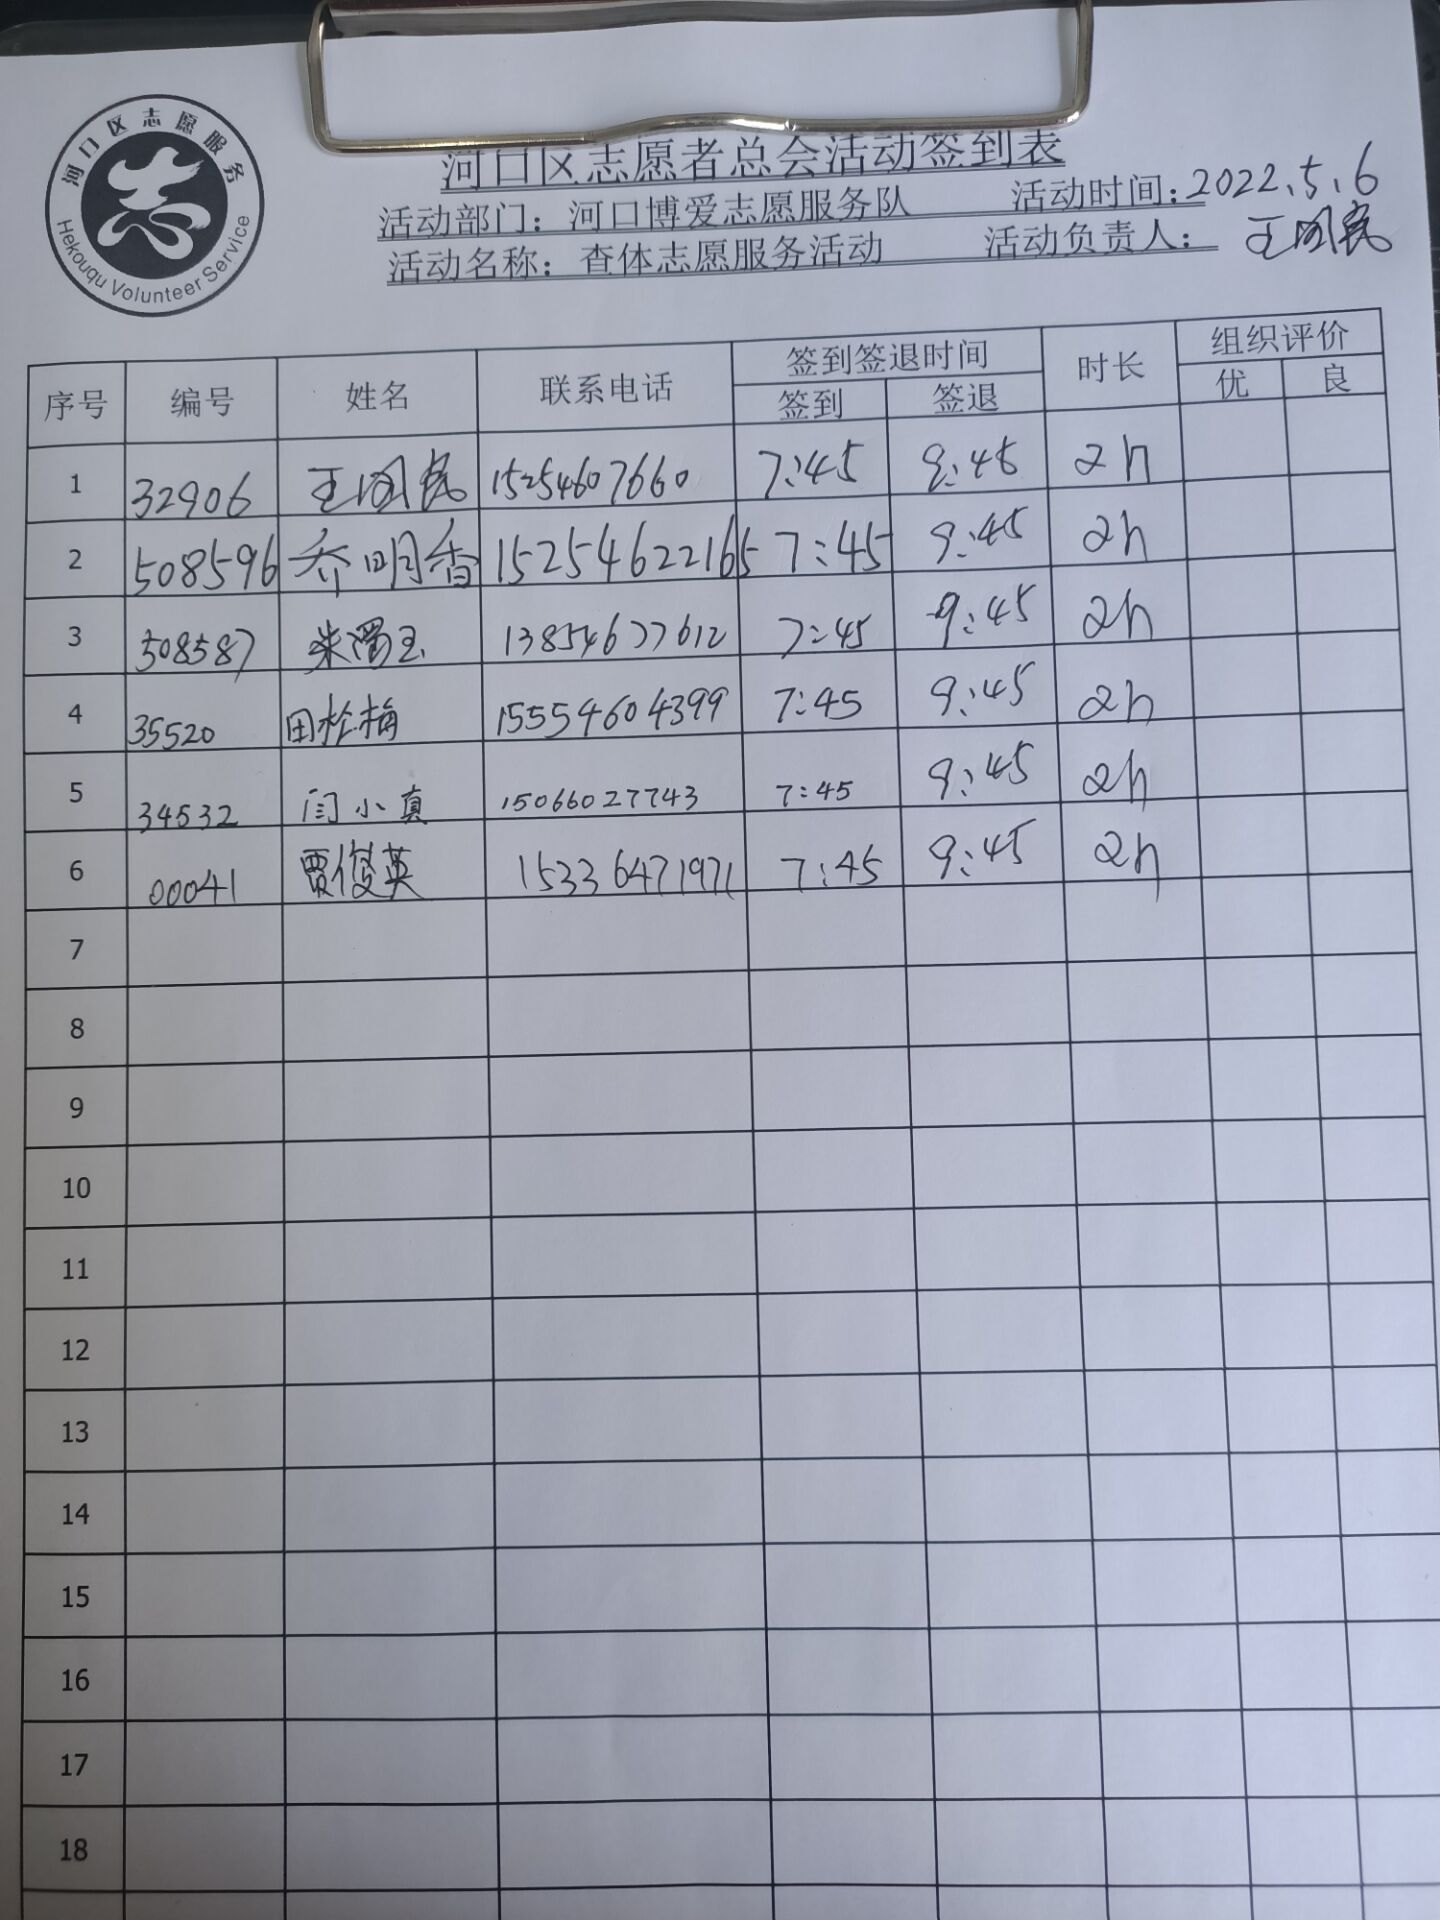 河口区志愿服务
Hekouqu Volunteer Service
河口区志愿者总会活动签到表
活动部门：河口博爱志愿服务队 活动时间：2022.5.6
活动名称：查体志愿服务活动 活动负责人：王国民
序号 编号 姓名 联系电话 签到签退时间 时长 组织评价
签到 签退 优 良
1 32906 王国民 15254607660 7:45 9:45 2h
2 508596 乔明香 15254622165 7:45 9:45 2h
3 508587 13854677612 7:45 9:45 2h
4 35520 田松梅 15554604399 7:45 9:45 2h
5 34532 闫小真 15066027743 7:45 9:45 2h
6 00041 贾俊英 15336471971 7:45 9:45 2h
7
8
9
10
11
12
13
14
15
16
17
18